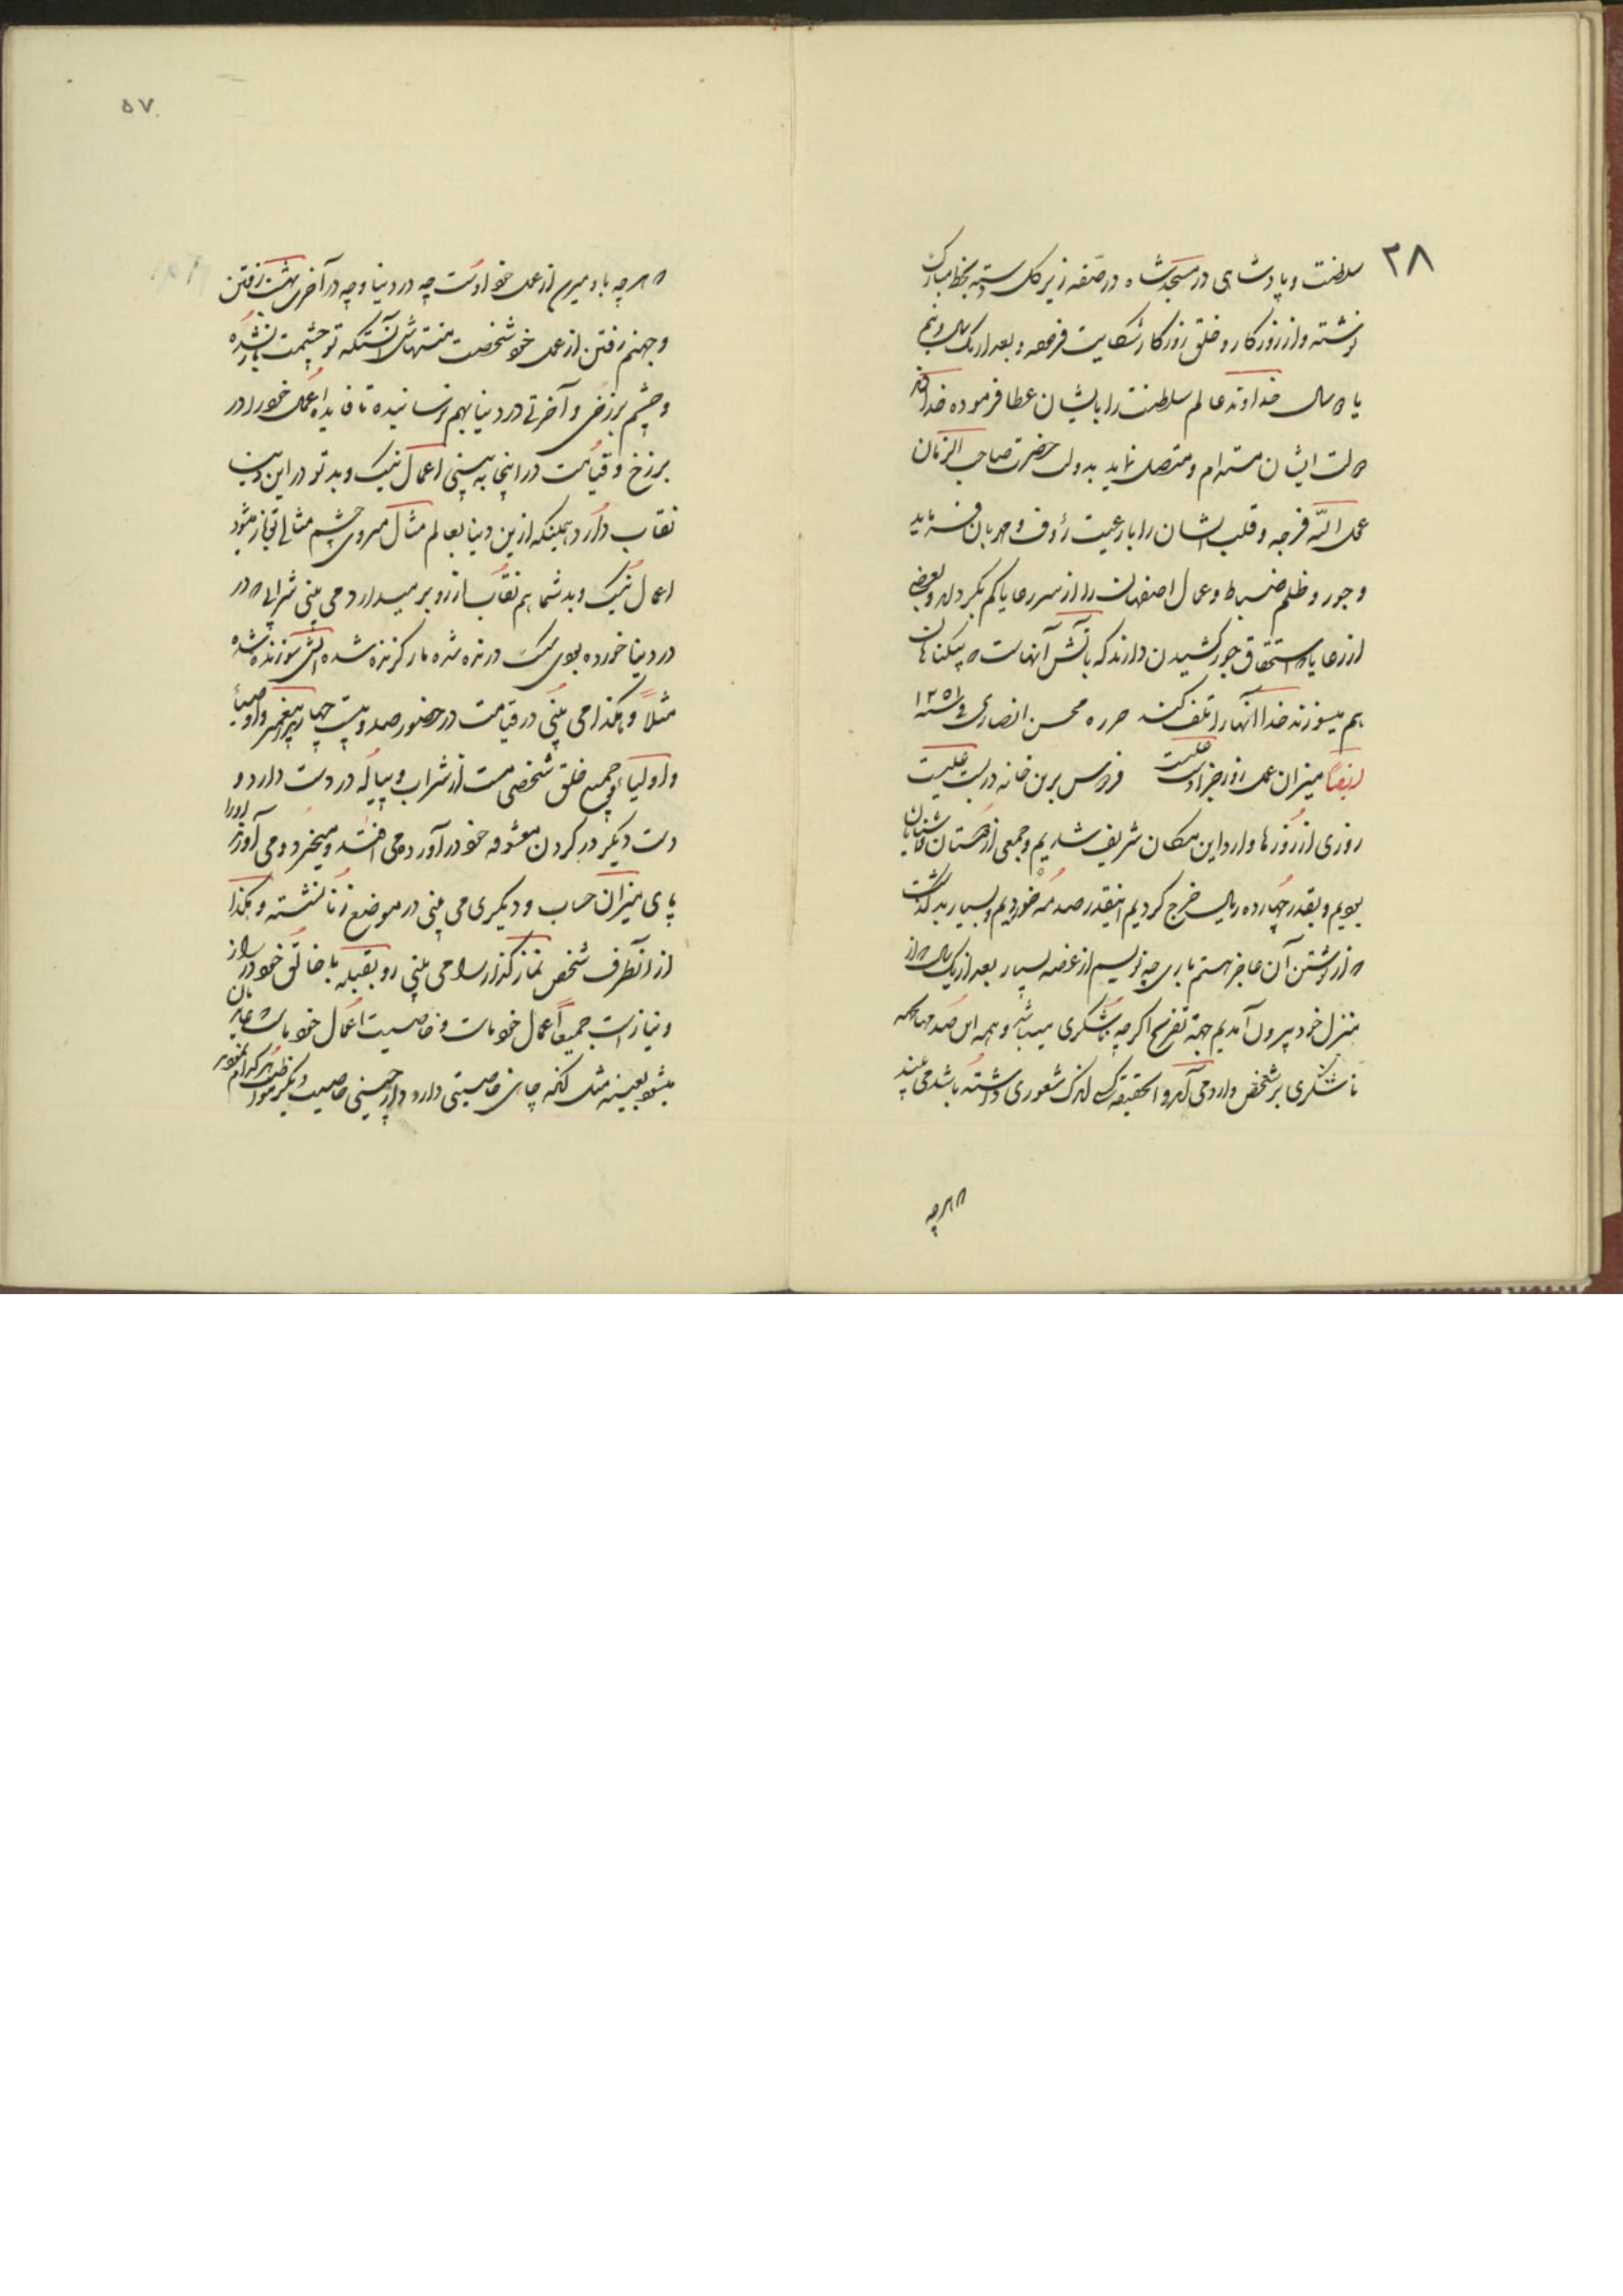 ۳۸
سلطنت و پادشاهی در مسجد شاه در صفه زیر کل دسته بخط مبارک
نوشته و از روزکار و خلق روزکار شکایت فرموده و بعد از یک سال و نیم
یا دو سال خداوند عالم سلطنت را بایشان عطا فرموده خداوند
دولت ایشان مستدام و متصل نماید بدولت حضرت صاحب الزمان
عجل الله فرجه و قلب ایشان را با رعیت رؤف و مهربان فرماید
و جور و ظلم ضباط و عمال اصفهان را از سر رعایا کم بکرداند و بعضی
از رعایا که استحقاق جور کشیدن دارند که بآتش آنهاست که بیکناهان
هم میسوزند خدا آنها را تلف کند حرره محسن انصاری فی سنه ۱۲۵۱
ایضاً میزان عمل روز جزا دست علیست فردوس برین خانه دربست علیست
روزی از روزها وارد این مکان شریف شدیم و جمعی از دوستان و آشنایان
بودیم و بقدر چهارده ریال خرج کردیم اینقدر صدمه خوردیم و بسیار بد گذشت
که از نوشتن آن عاجز هستم باری چه نویسم از غصه بسیار بعد از یک سال که از
منزل خود بیرون آمدیم جهة تفرج اکرچه ناشکری میباشد و همه این صدمها همه
ناشکری بر شخص وارد می آید و الحقیقة کسی اندک شعوری داشته باشد می بیند
که هرچه
۵۷
که هرچه باو میرسد از عمل خود اوست چه در دنیا و چه در آخرت بهشت رفتن
و جهنم رفتن از عمل خود شخصست منتهاش آنستکه تو چشمت باز نشده
و چشم برزخی و آخرتی در دنیا بهم نرسانیده تا فایده اعمال خود را در
برزخ و قیامت در اینجا به بینی اعمال نیک و بد تو در این دنیا
نقاب دارد همینکه ازین دنیا بعالم مثال میروی چشم مثالی تو باز میشود
اعمال نیک و بد شما هم نقاب از رو بر میدارد می بینی شرابی که در
در دنیا خورده بودی سک درنده شده مار کزنده شده آتش سوزنده شده
مثلاً و هکذا می بینی در قیامت در حضور صد و بیست و چهار هزار پیغمبر و اوصیاء
و اولیاء و جمیع خلق شخصی مست از شراب و پیاله در دست دارد و
دست دیکر در کردن معشوقه خود در آورده می افتد و میخیزد و می آورند او را
پای میزان حساب و دیکری می بینی در موضع زنا نشسته و هکذا
از آنطرف شخص نماز کذار را می بینی رو بقبله با خالق خود در راز
و نیاز است جمیعاً اعمال خود ماست و خاصیت اعمال خود ماست عاید مان
میشود بعینه مثل آنکه چای خاصیتی دارد و دارچینی خاصیت دیکر